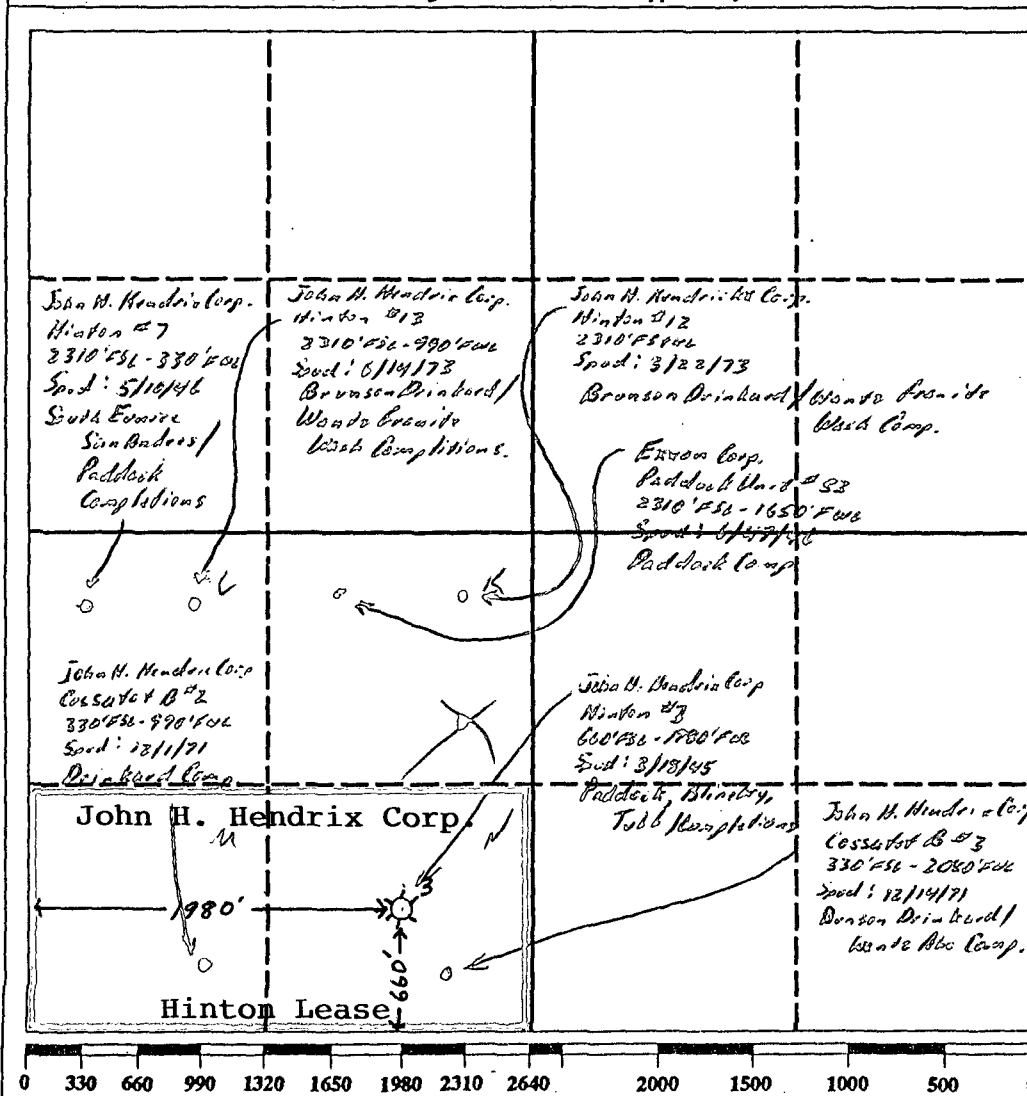 John H. Hendrix Corp.
Hinton #7
2310' FSL - 330' FWL
Spud: 5/10/46
South Eunice
San Andres/
Paddock
Completions
John H. Hendrix Corp.
Hinton #13
2310' FSL - 990' FWL
Spud: 6/14/73
Brunson Drinkard/
Wantz Granite
Wash Completions.
John H. Hendrix Corp.
Hinton #12
2310' FS & WL
Spud: 3/22/73
Brunson Drinkard/Wantz Granite
Wash Comp.
Exxon Corp.
Paddock Unit #53
2310' FSL - 1650' FWL
Spud:
Paddock Comp
L
K
John H. Hendrix Corp
Cossatot B #2
330' FSL - 990' FWL
Spud: 12/1/71
Drinkard Comp
John H. Hendrix Corp
Hinton #3
660' FSL - 1980' FWL
Spud: 3/18/45
Paddock, Blinebry,
Tubb Completions
John H. Hendrix Corp
Cossatot B #3
330' FSL - 2080' FWL
Spud: 12/14/71
Brunson Drinkard/
Wantz Abo Comp.
John H. Hendrix Corp.
M
N
3
1980'
660'
Hinton Lease
0 330 660 990 1320 1650 1980 2310 2640 2000 1500 1000 500